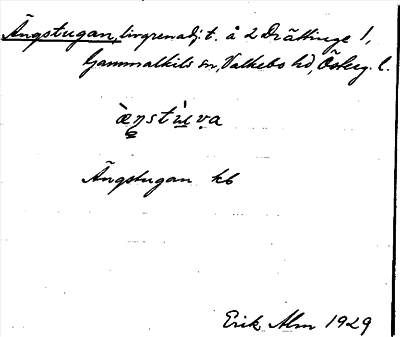 Ängstugan, livgrenadj. t. å 2 Drättinge 1,
Gammalkils sn, Valkebo hd, Österg. l.
æ̀ŋstu̇̀va
Ängstugan kb
Erik Alm 1929